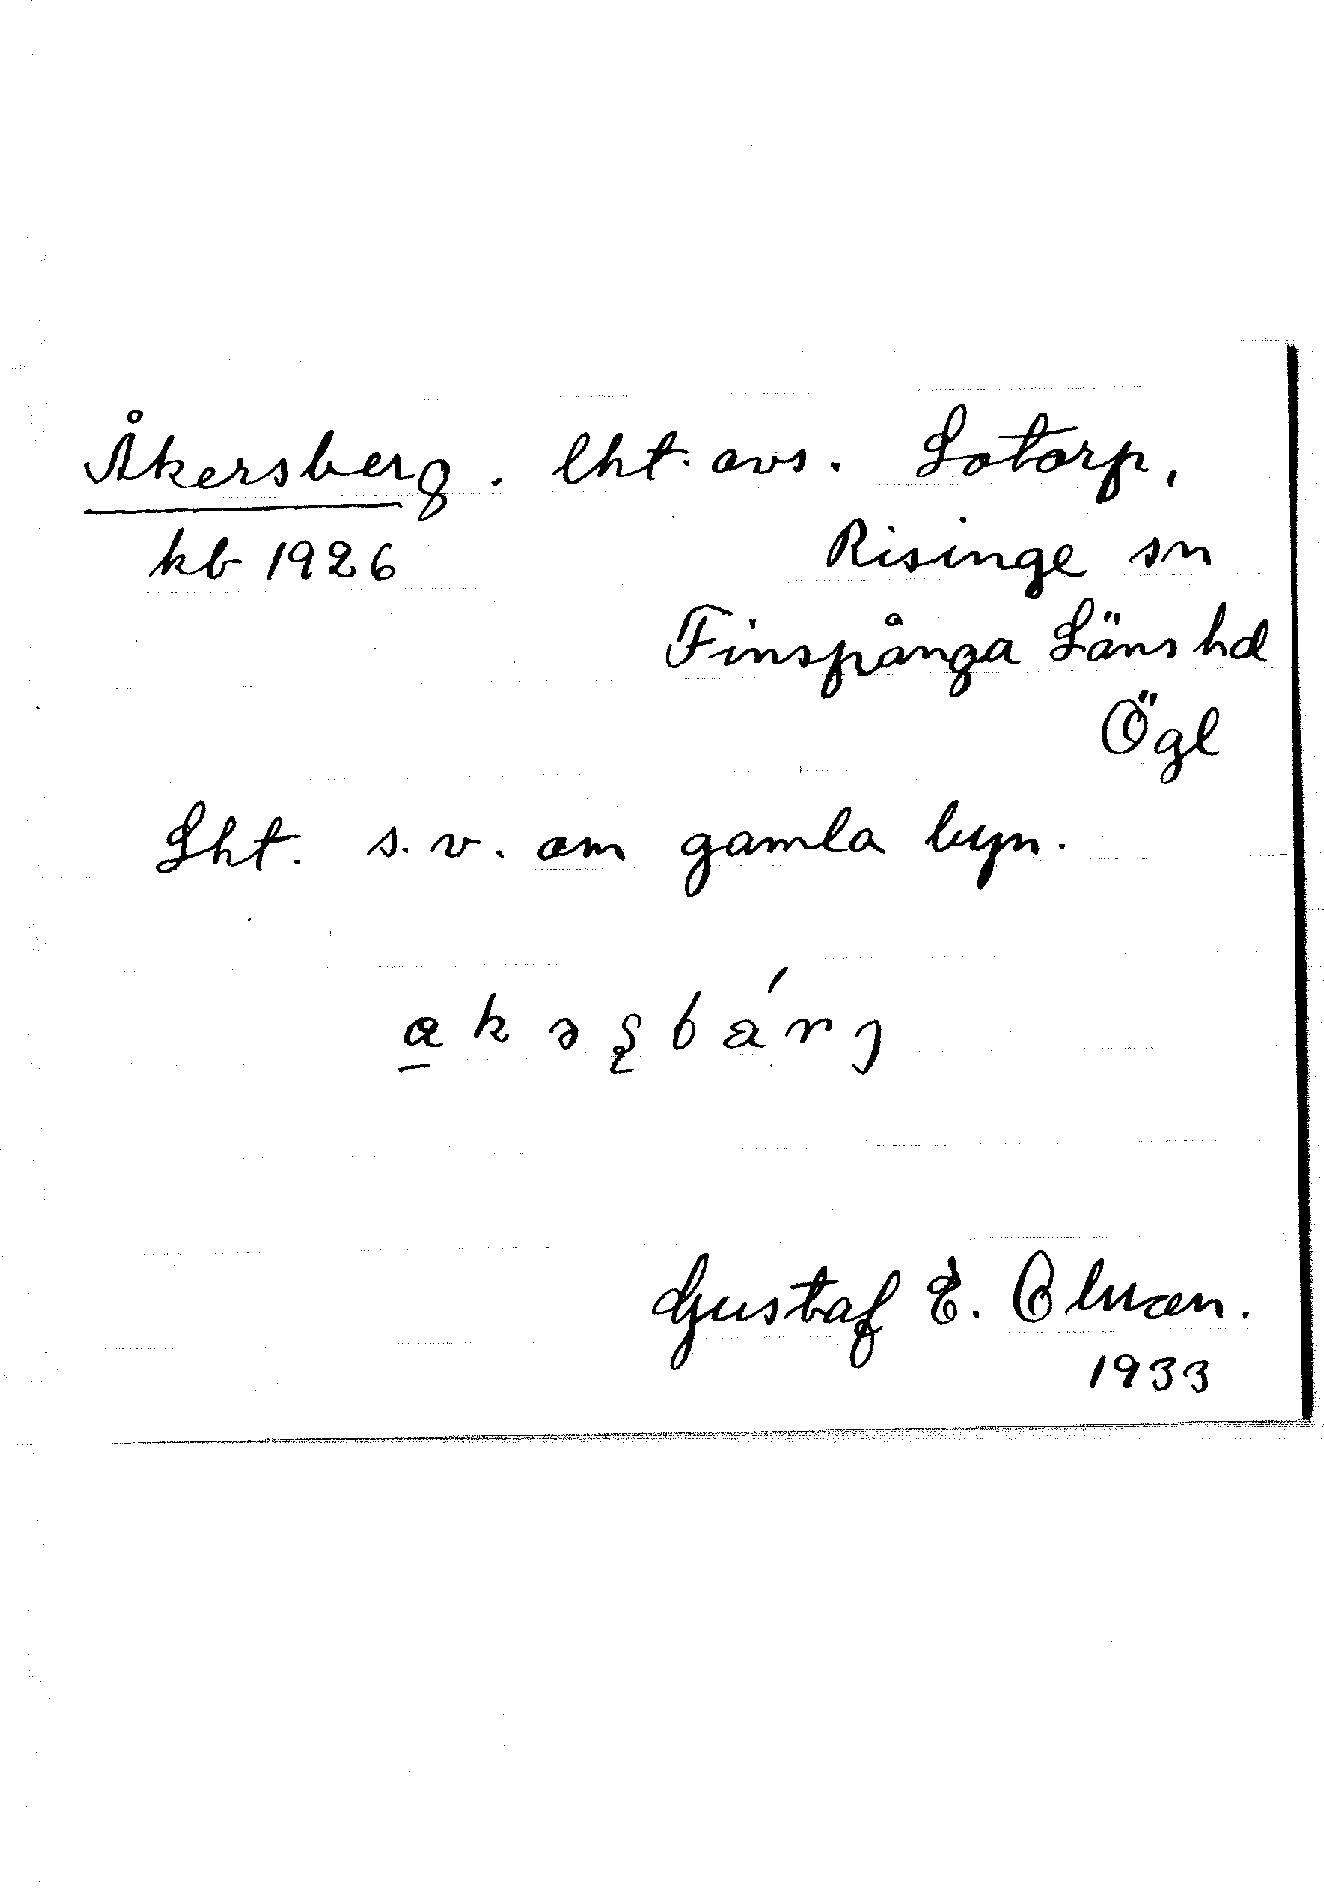 Åkersberg. lht. avs. Lotorp,
kb 1926 Risinge sn
Finspånga Läns hd
Ögl
Lht. s.v. om gamla byn.
Gustaf E.
1933